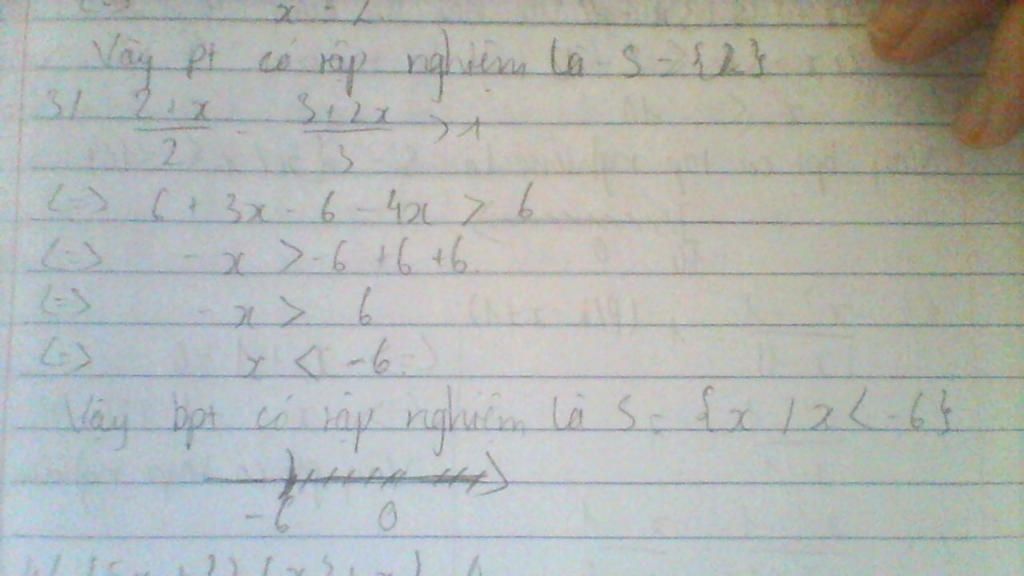 x = 2
Vây pt có tâp nghiệm là S = {2}
3/ 2+x/2 - 3+2x/3 > 1
(=) 6 + 3x - 6 - 4x > 6
(=) - x > -6 + 6 + 6
(=) - x > 6
(=) x < -6
Vây bpt có tâp nghiệm là S = {x / x < -6}
-6 0